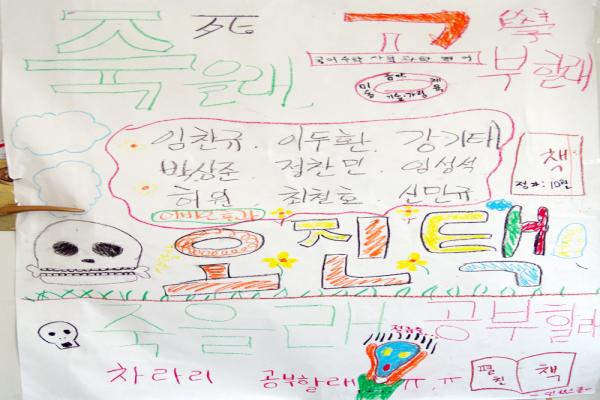 죽을래 死 공부할래
국어 수학 사회 과학 영어
음악 체육 미술 기술·가정
임찬규. 이두환. 강기태
박상준. 정찬민. 임성석
허원. 최철호. 신민규
책
정가: 10원
윤진택
죽을래 공부할래
차라리 공부할래 ㅠ.ㅠ
책